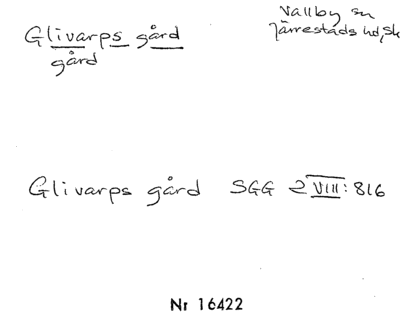 Glivarps gård
gård
Vallby sn
Järrestads hd, Sk
Glivarps gård SGG 2 VIII: 816
Nr 16422